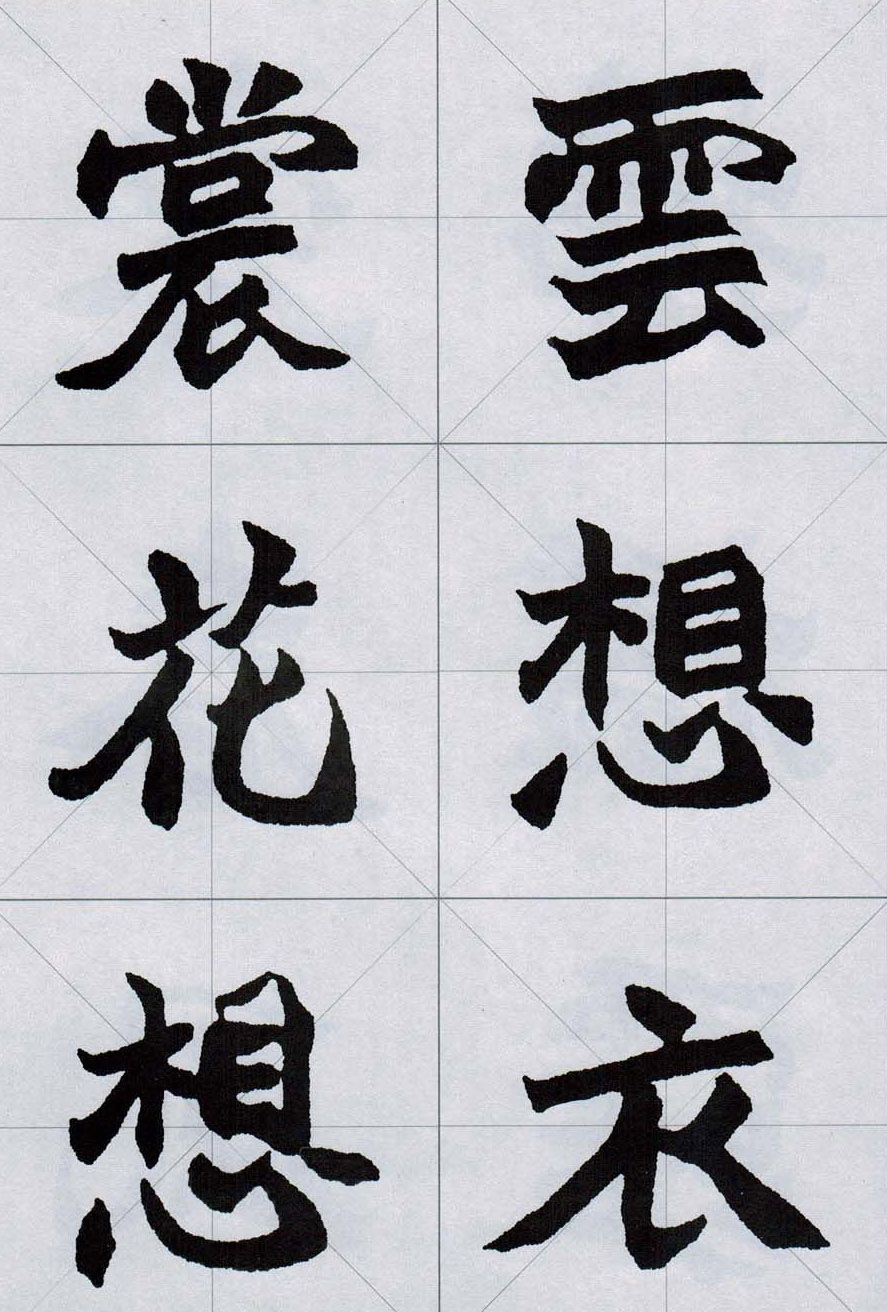 雲想衣
裳花想